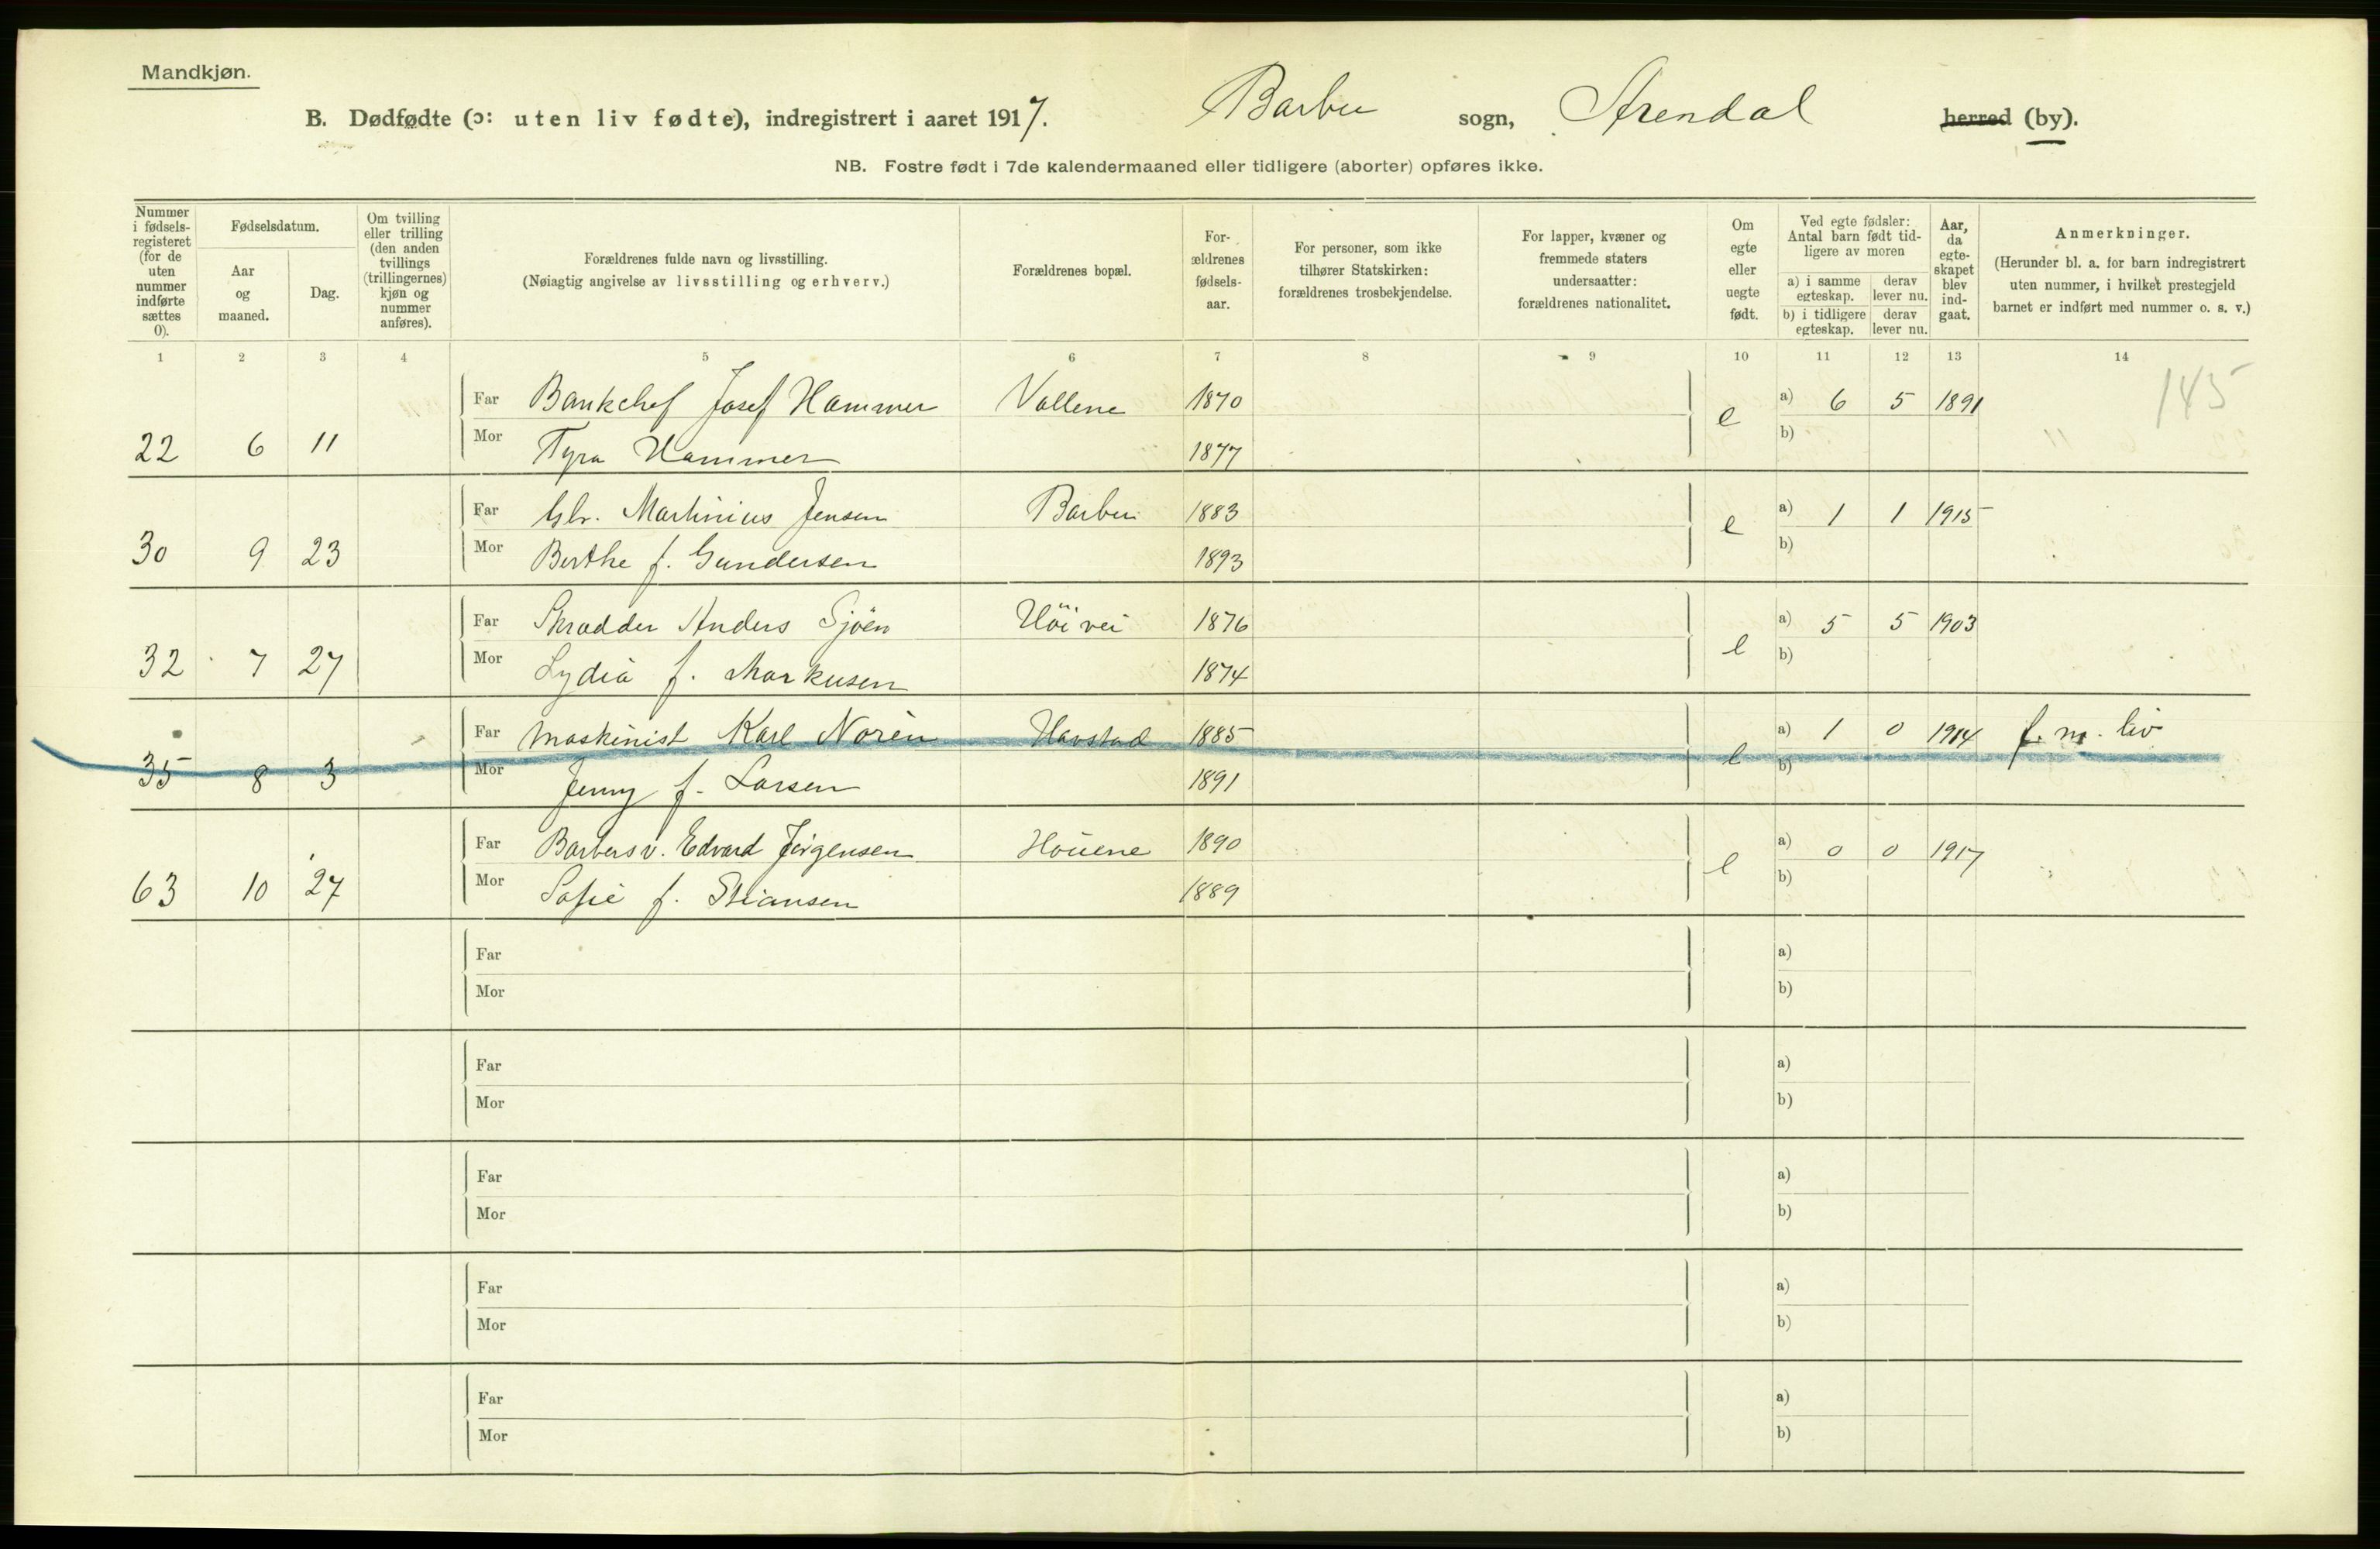 Mandkjøn.
B. Dødfødte (ɔ: uten liv fødte), indregistrert i aaret 1917. Barbu sogn, Arendal herred (by).
NB. Fostre født i 7de kalendermaaned eller tidligere (aborter) opføres ikke.
Nummer i fødsels-registeret (for de uten nummer indførte sættes 0).
Fødselsdatum.
Aar og maaned.
Dag.
Om tvilling eller trilling (den anden tvillings (trillingernes) kjøn og nummer anføres).
Forældrenes fulde navn og livsstilling.
(Nøiagtig angivelse av livsstilling og erhverv.)
Forældrenes bopæl.
For-ældrenes fødsels-aar.
For personer, som ikke tilhører Statskirken: forældrenes trosbekjendelse.
For lapper, kvæner og fremmede staters undersaatter: forældrenes nationalitet.
Om egte eller uegte født.
Ved egte fødsler: Antal barn født tid-ligere av moren
a) i samme egteskap. derav lever nu.
b) i tidligere egteskap. derav lever nu.
Aar, da egte-skapet blev ind-gaat.
Anmerkninger.
(Herunder bl. a. for barn indregistrert uten nummer, i hvilket prestegjeld barnet er indført med nummer o. s. v.)
1 2 3 4 5 6 7 8 9 10 11 12 13 14
145
Far Bankchef Josef Hammer Vollene 1870 a) 6 5 1891
22 6 11 Mor Tyra Hammer 1877 e b)
Far Gbr. Martinius Jensen Barbu 1883 a) 1 1 1915
30 9 23 Mor Berthe f. Gundersen 1893 e b)
Far Skrædder Anders Sjöen Höivei 1876 a) 5 5 1903
32 7 27 Mor Lydia f. Markusen 1874 e b)
Far Maskinist Karl Norèn Havstad 1885 a) 1 0 1914 f. m. liv
35 8 3 Mor Jenny f. Larsen 1891 e b)
Far Barbersv. Edvard Jörgensen Houene 1890 a) 0 0 1917
63 10 27 Mor Sofie f. Stiansen 1889 e b)
Far a)
Mor b)
Far a)
Mor b)
Far a)
Mor b)
Far a)
Mor b)
Far a)
Mor b)